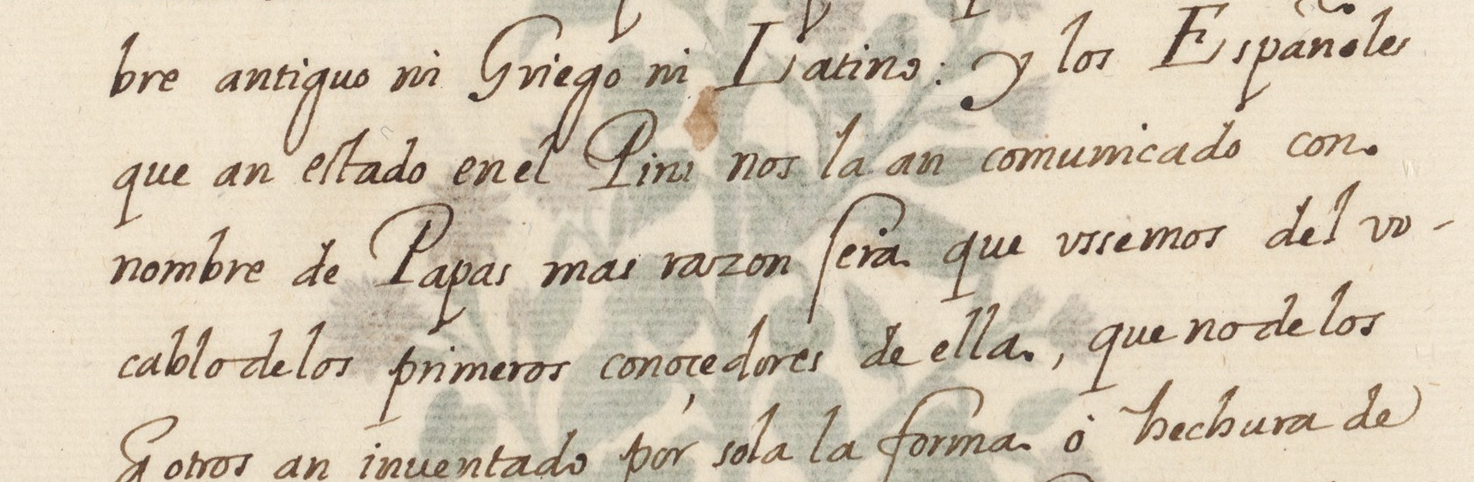 bre antiguo ni Griego ni Latino: y los Españoles
que an estado en el Piru nos la an comunicado con
nombre de Papas mas razon sera que vssemos del vo-
cablo de los primeros conoçedores de ella, que no de los
q otros an inuentado por sola la forma ó hechura de